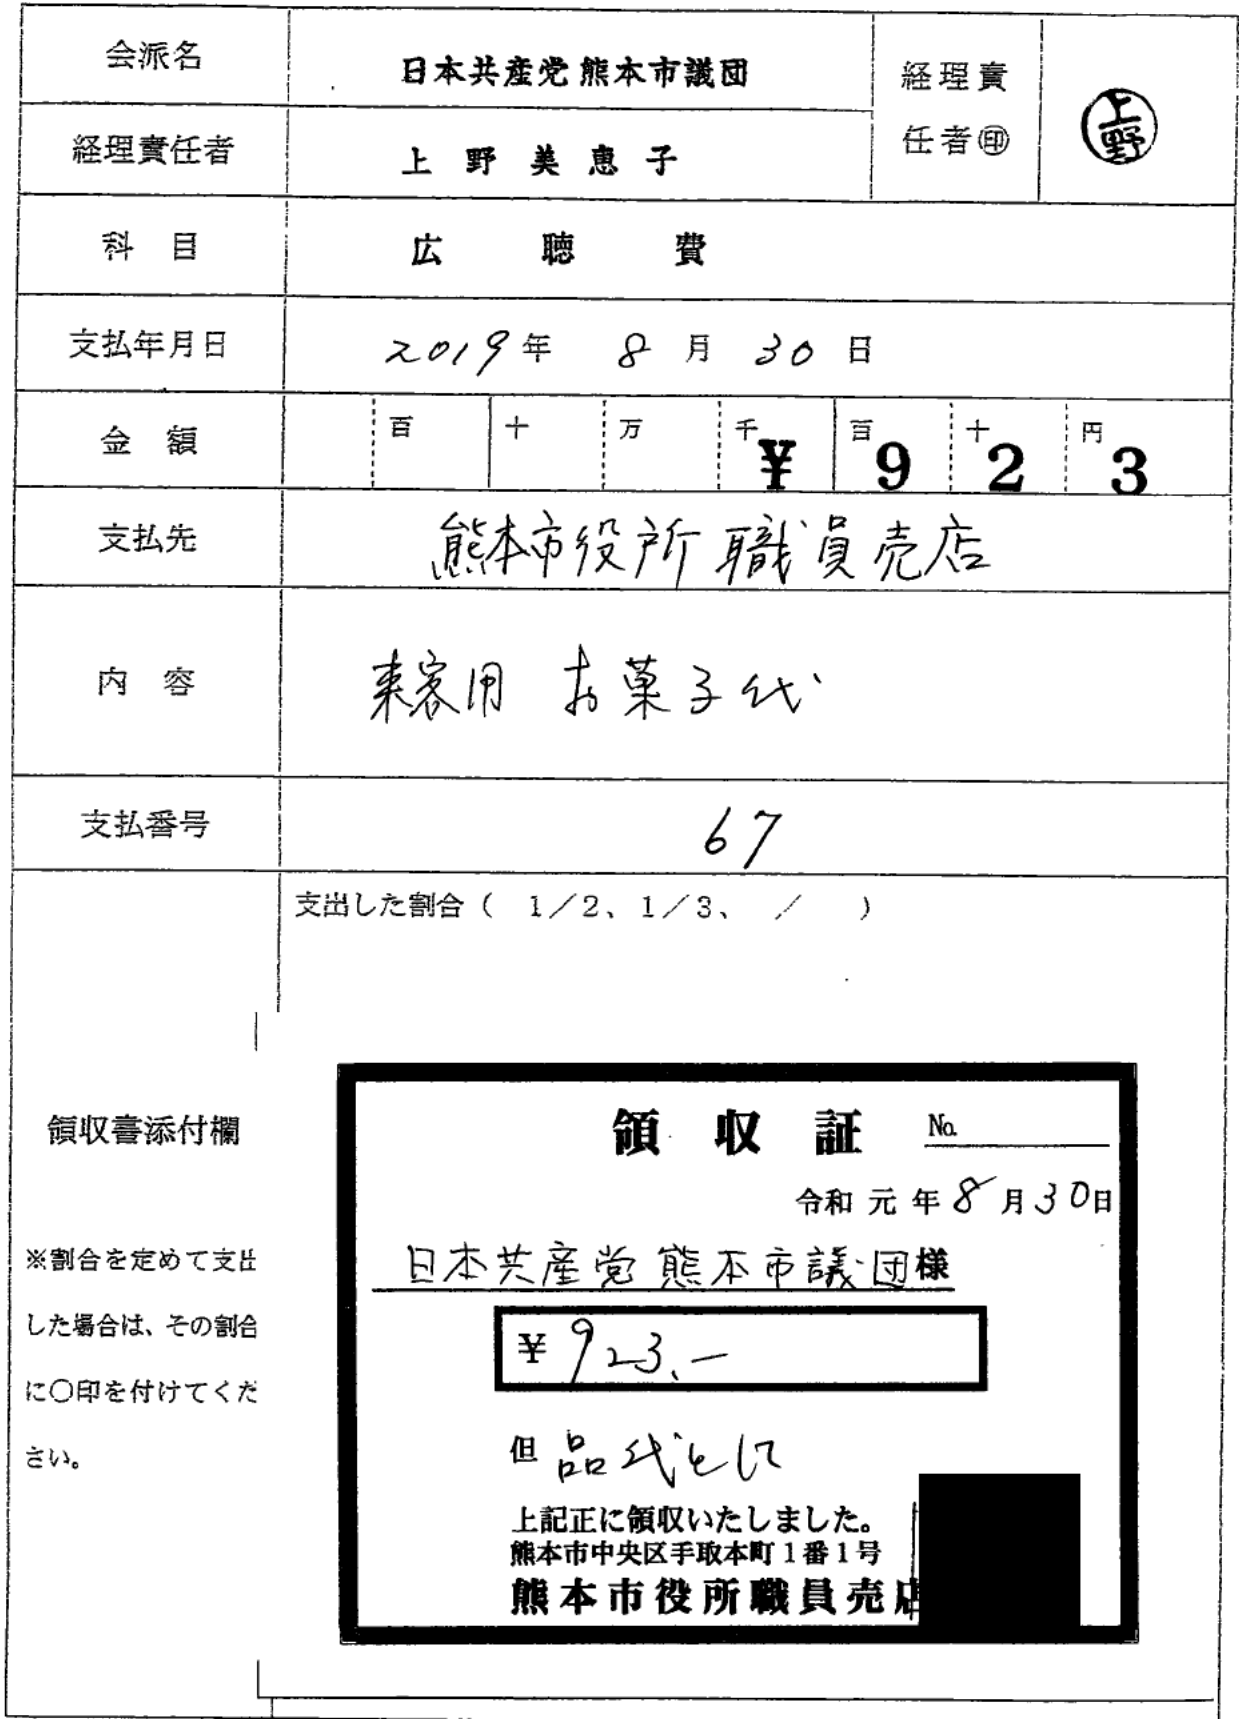 会派名 日本共産党熊本市議団 経理責任者㊞ 上野
経理責任者 上野美恵子
科目 広聴費
支払年月日 2019年 8月 30日
金額 百 十 万 千 百 十 円
¥923
支払先 熊本市役所職員売店
内容 来客用 お菓子代
支払番号 67
支出した割合( 1/2、1/3、 / )
領収書添付欄
※割合を定めて支出
した場合は、その割合
に○印を付けてくだ
さい。
領収証 No.
令和元年8月30日
日本共産党熊本市議団様
¥923.-
但 品代として
上記正に領収いたしました。
熊本市中央区手取本町1番1号
熊本市役所職員売店